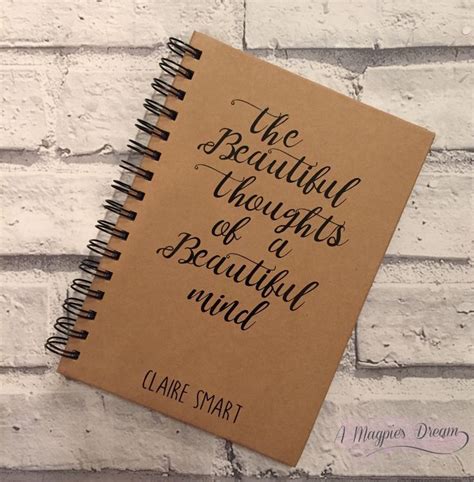 the
Beautiful
thoughts
of a
Beautiful
mind
CLAIRE SMART
A Magpies Dream